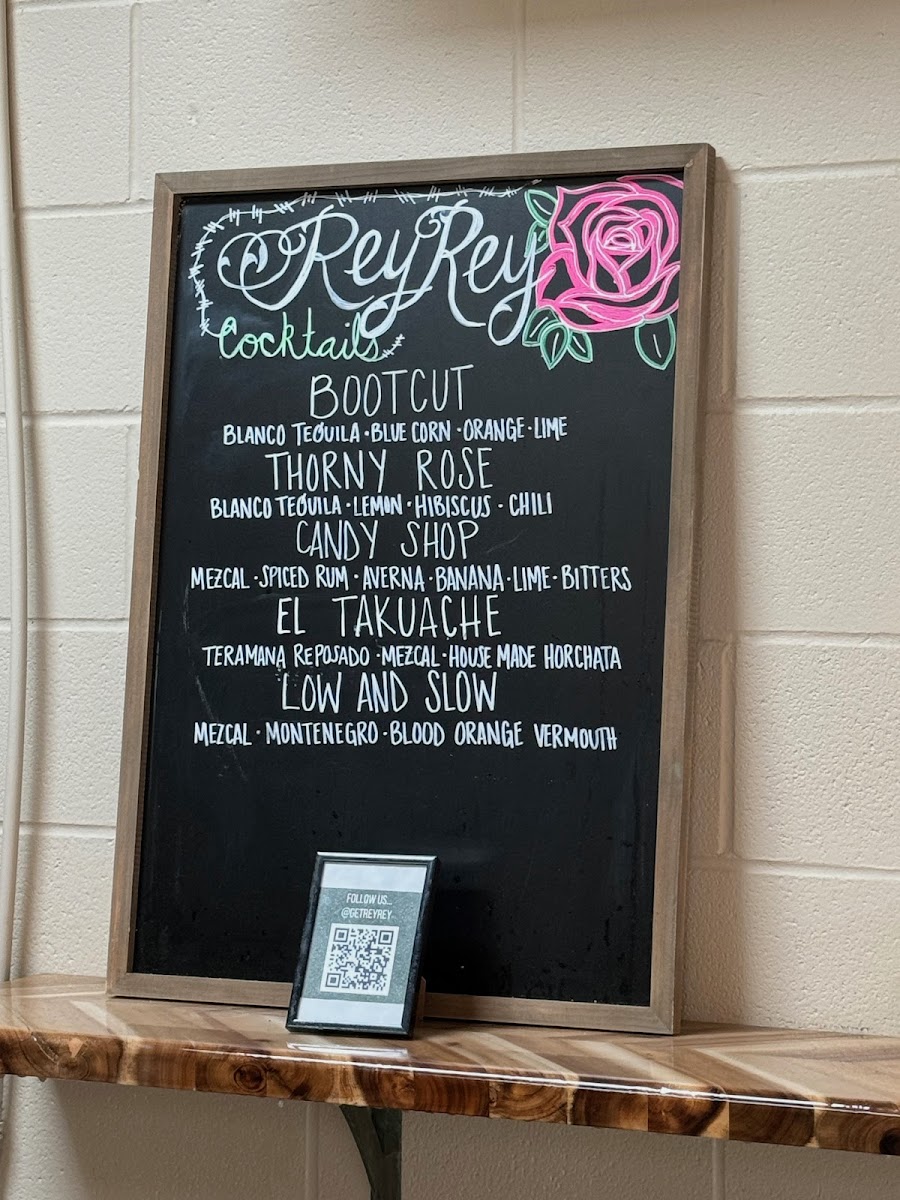 ReyRey
Cocktails
BOOTCUT
BLANCO TEQUILA · BLUE CORN · ORANGE · LIME
THORNY ROSE
BLANCO TEQUILA · LEMON · HIBISCUS · CHILI
CANDY SHOP
MEZCAL · SPICED RUM · AVERNA · BANANA · LIME · BITTERS
EL TAKUACHE
TERAMANA REPOSADO · MEZCAL · HOUSE MADE HORCHATA
LOW AND SLOW
MEZCAL · MONTENEGRO · BLOOD ORANGE VERMOUTH
FOLLOW US...
@GETREYREY